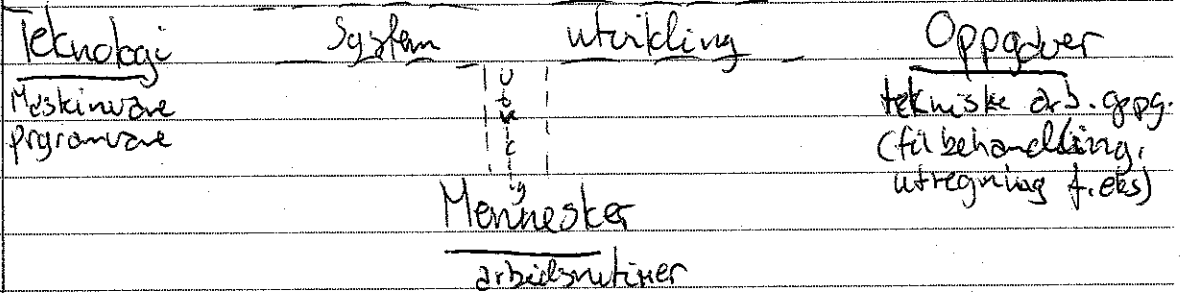 Teknologi System utvikling Oppgaver
Maskinvare
prgramvare
tekniske arb.oppg.
(filbehandling,
utregning f.eks)
Mennesker
arbeidsrutiner